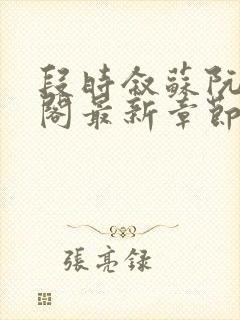 段時敘蘇阮
閣最新章節
張亮録